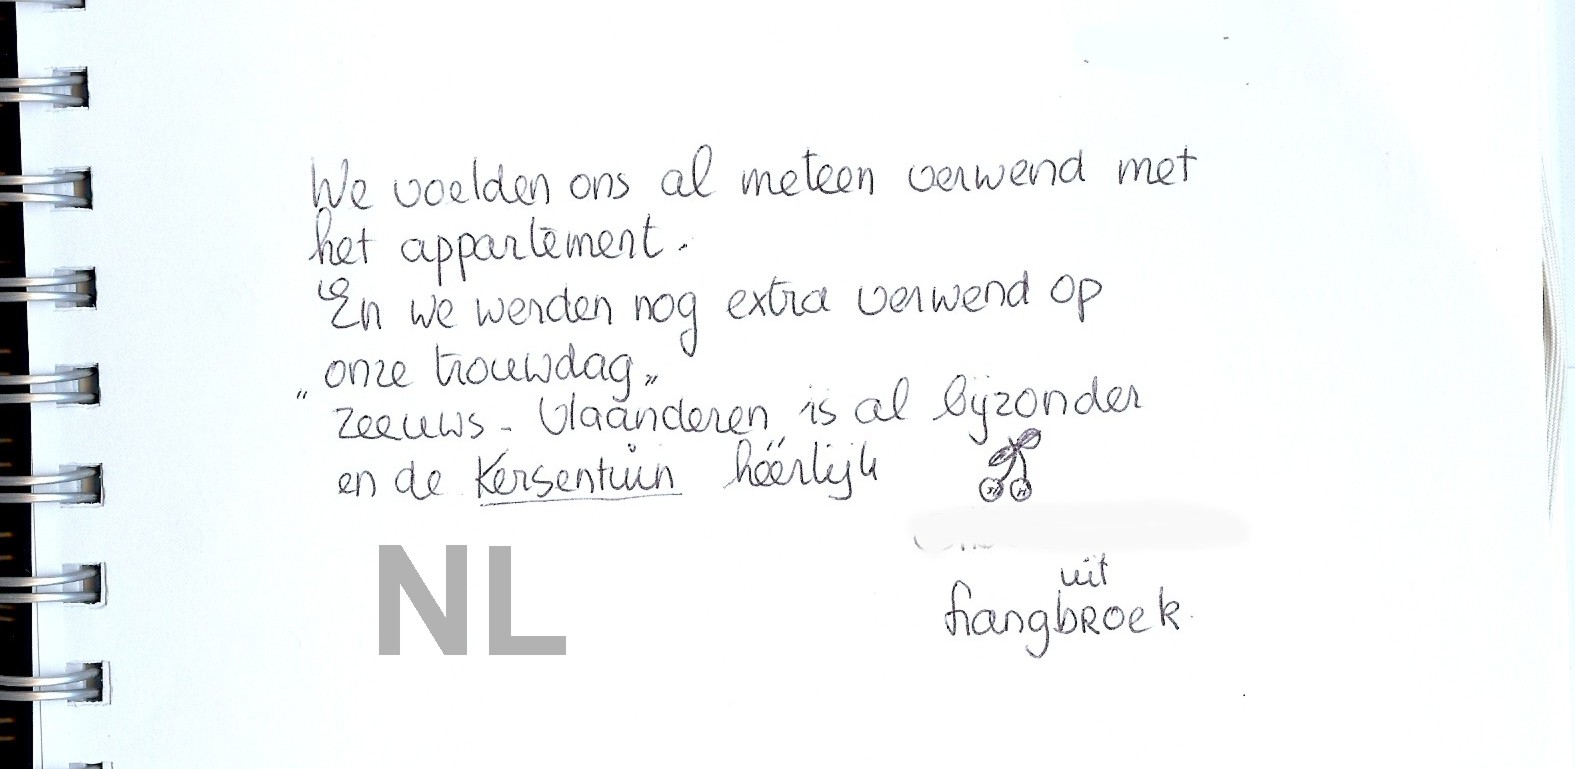 We voelden ons al meteen verwend met
het appartement.
En we werden nog extra verwend op
onze trouwdag"
" Zeeuws - Vlaanderen is al bijzonder
en de Kersentuin héérlijk
NL
uit
Langbroek.